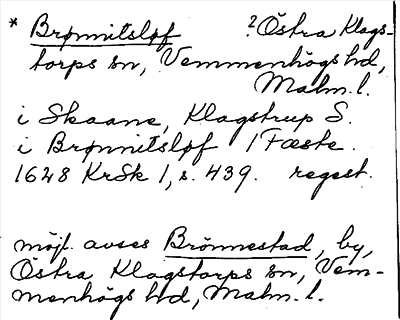 * Brønnitsløf ?Östra Klags-
torps sn, Vemmenhögs hd,
Malm. l.
i Skaane, Klagstrup S.
i Brønnitsløf 1 Fæste.
1628 KrSk 1, s. 439. regest.
möjl. avses Brönnestad, by,
Östra Klagstorps sn, Vem-
menhögs hd, Malm. l.